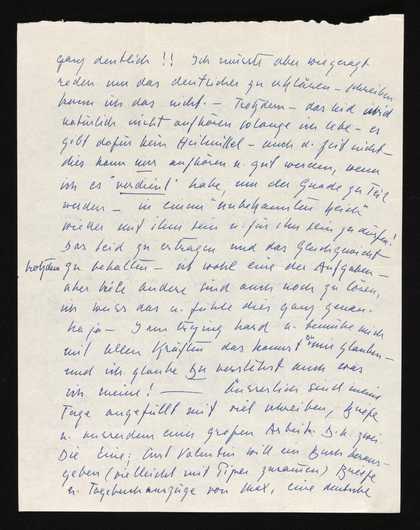 ganz deutlich !! Ich müsste aber wie gesagt
reden um das deutlicher zu erklären – schreiben
kann ich das nicht. – Trotzdem – das Leid wird
natürlich nicht aufhören solange ich lebe – es
gibt dafür kein Heilmittel – auch d. Zeit nicht –
dies kann nur aufhören u. gut werden, wenn
ich es "verdient" habe, um der Gnade zu Teil
werden – in einem "unbekannten Reich"
wieder mit ihm sein u. für ihn sein zu dürfen!
Das Leid zu ertragen und das Gleichgewicht
trotzdem zu behalten – ist wohl eine der Aufgaben –
aber viele andere sind auch noch zu lösen,
ich weiss das u. fühle dies ganz genau.
I am trying hard u. bemühe mich
mit allen Kräften das kannst Du mir glauben –
und ich glaube Du verstehst auch was
ich meine! — Äusserlich sind meine
Tage angefüllt mit viel schreiben, Briefe
u. ausserdem einer grossen Arbeit. D.h. zwei
Die Eine: Curt Valentin will ein Buch heraus-
geben (vielleicht mit Piper zusammen) Briefe
u. Tagebuchauszüge von Max, eine deutsche